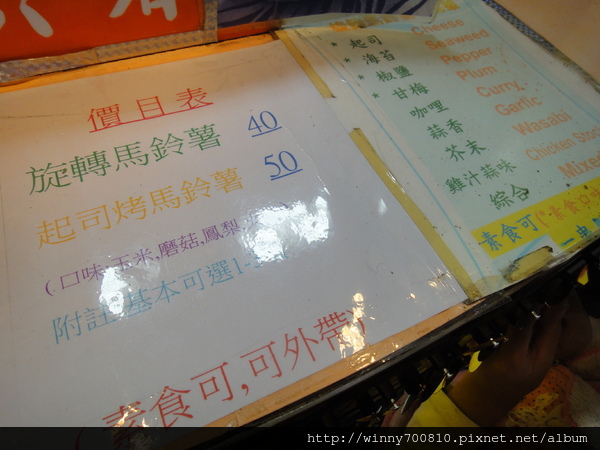 價目表
旋轉馬鈴薯 40
起司烤馬鈴薯 50
(口味:玉米,磨菇,鳳梨,
附註:基本可選1-
(素食可,可外帶)
* 起司 Cheese
* 海苔 Seaweed
* 椒鹽 Pepper
* 甘梅 Plum
咖哩 Curry
蒜香 Garlic
芥末 Wasabi
雞汁蒜味 Chicken Stock
綜合 Mixed
素食可(*素食
http://winny700810.pixnet.net/album